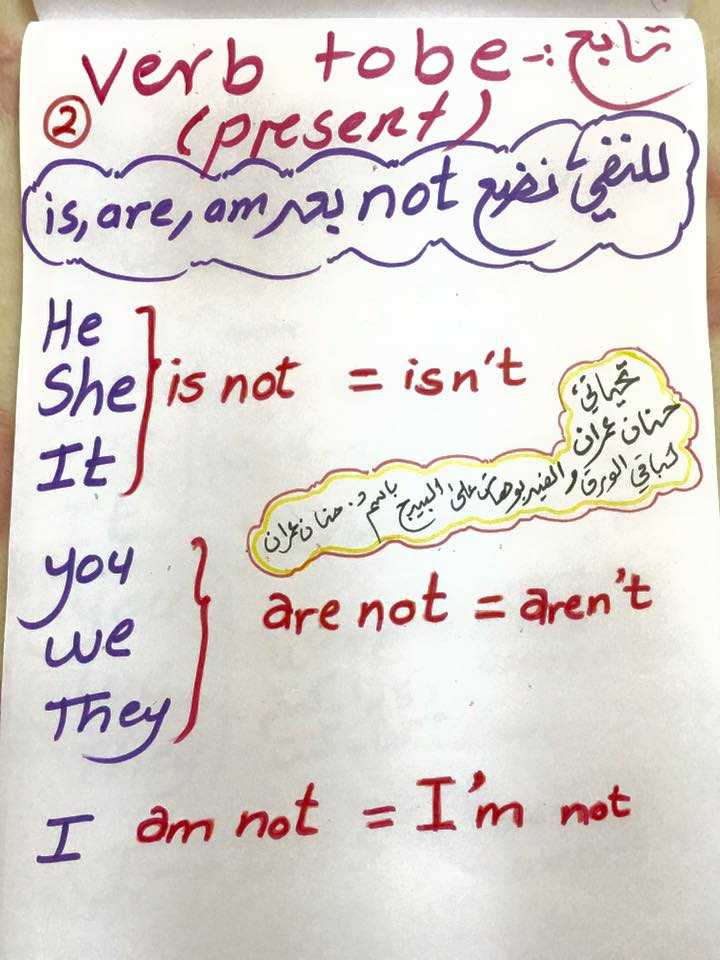 تابع :- verb to be
② (present)
للنفي نضع not بعد is, are, am
He
She is not = isn't
It
تحياتي
حنان عمران
كباقي الورق و الفيديوهات على البيدج باسم د. حنان عمران
you
we are not = aren't
They
I am not = I'm not